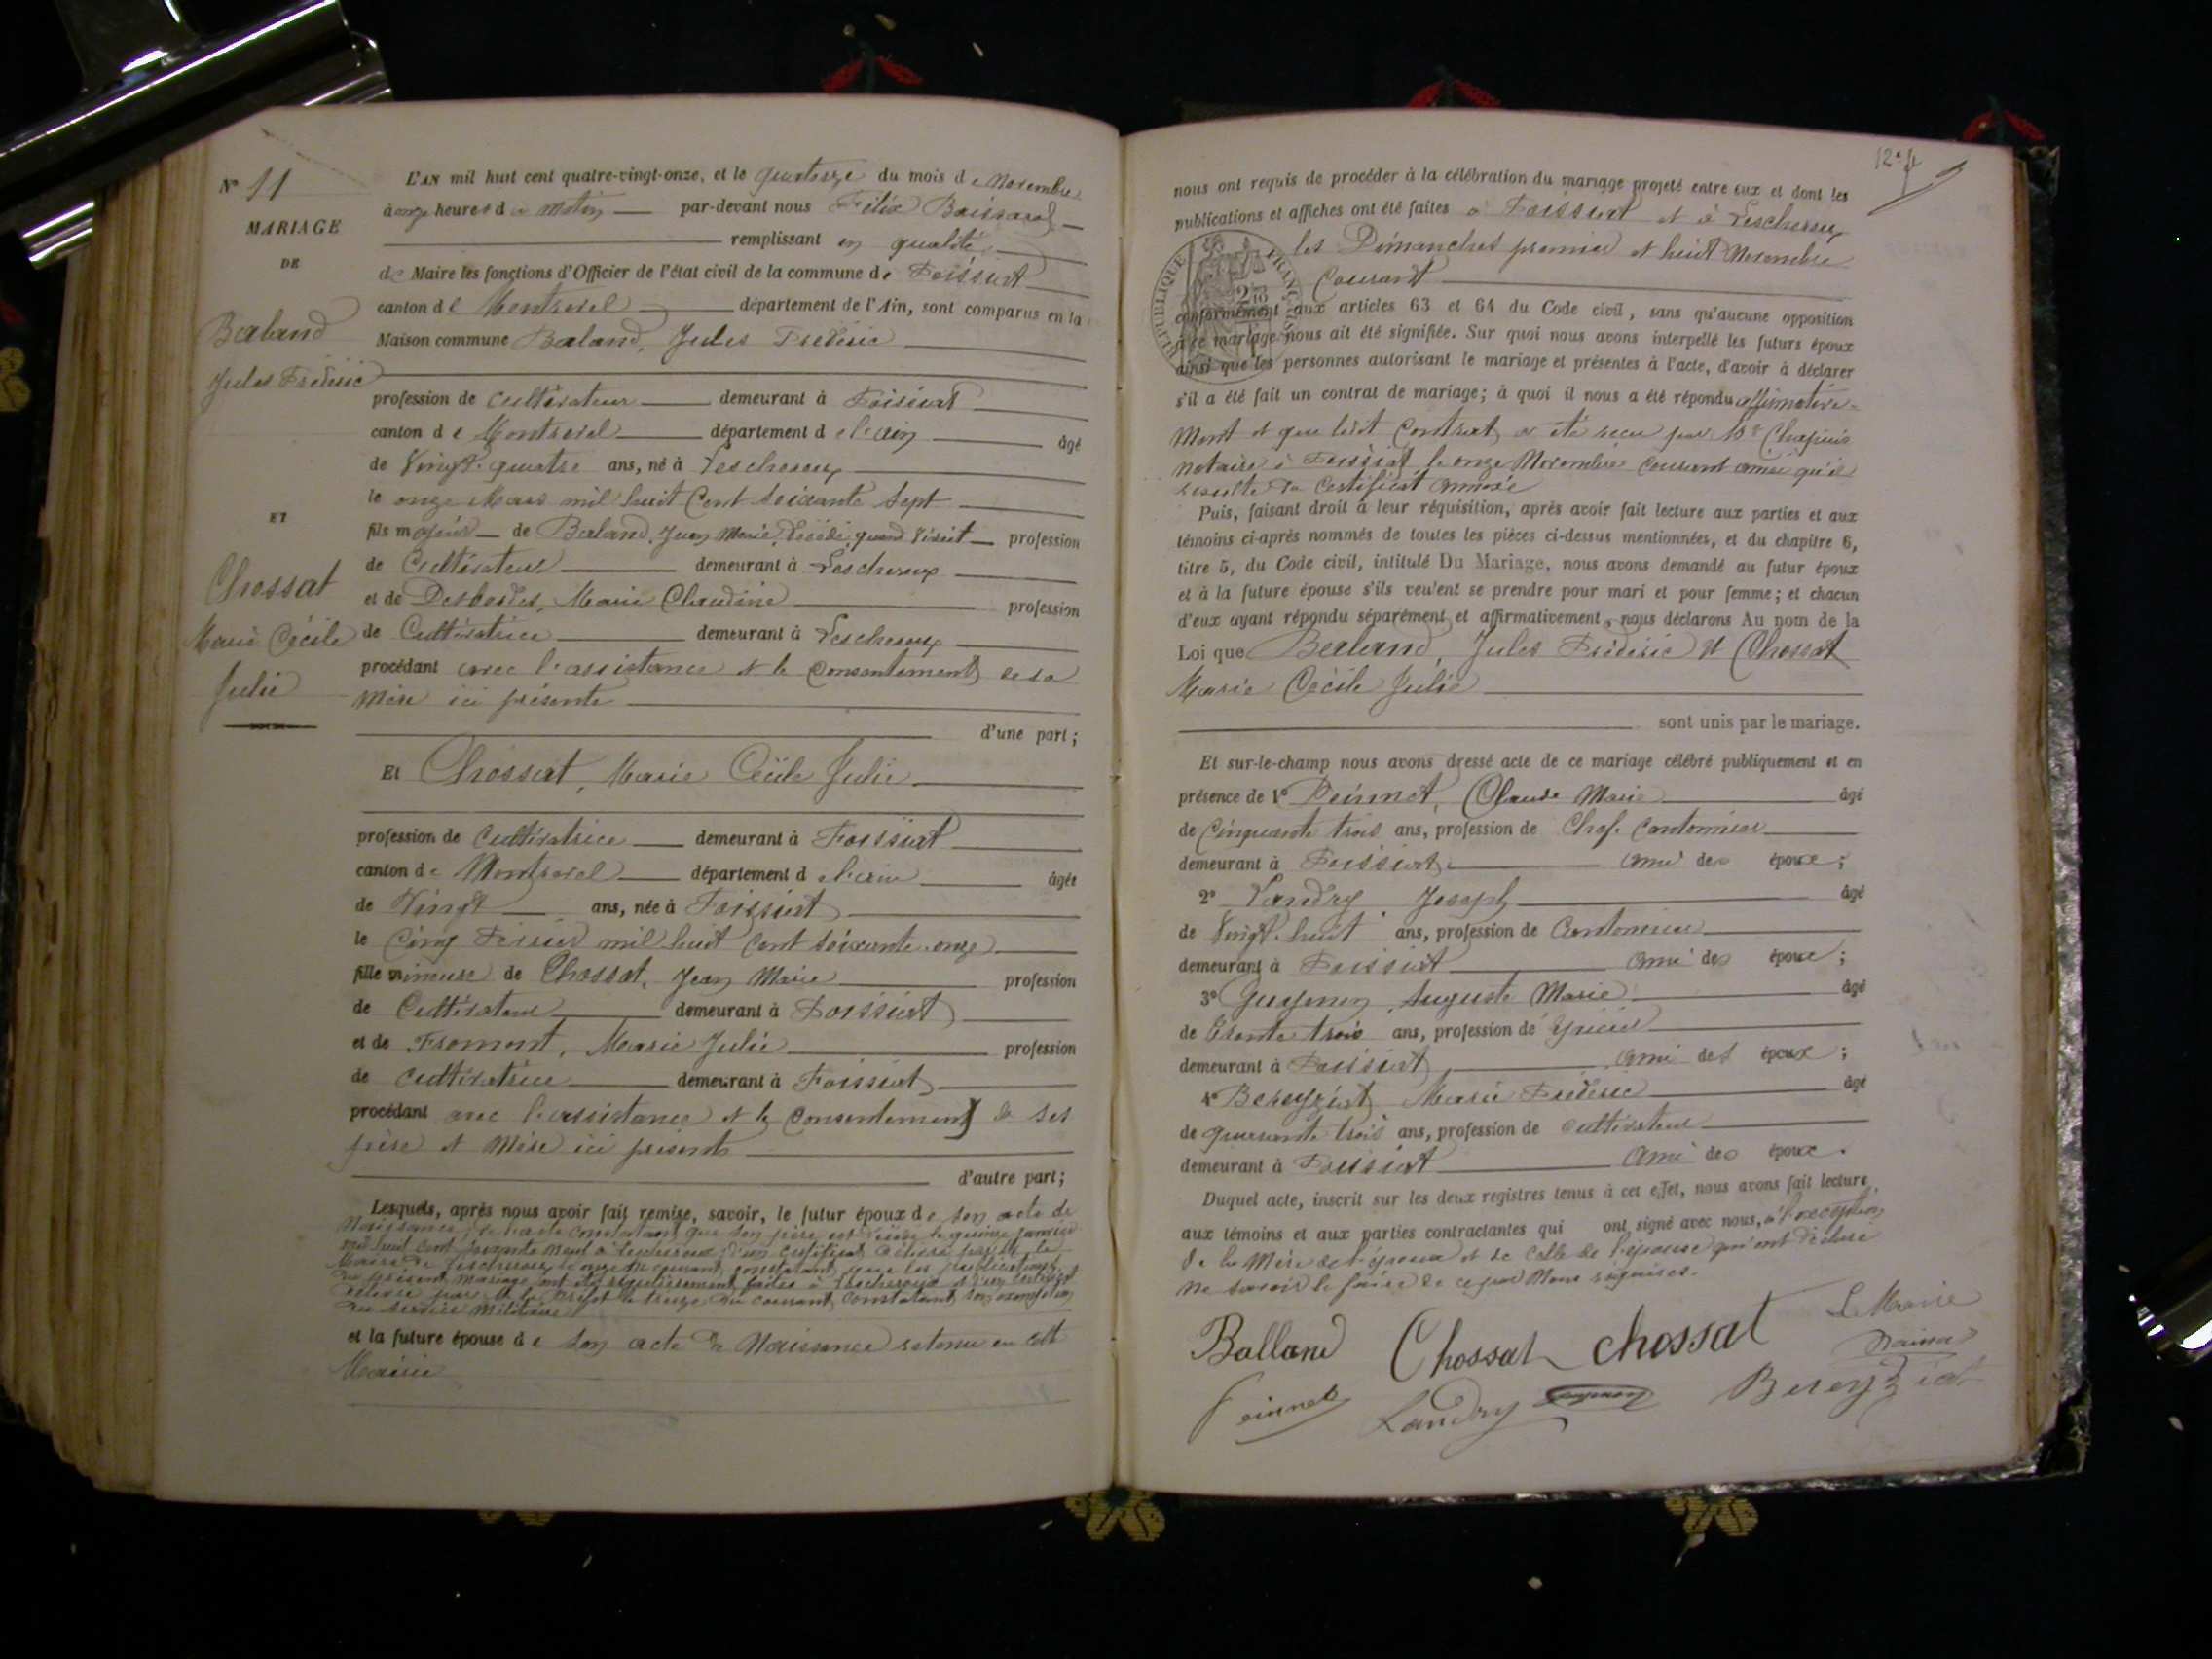 N° 11
MARIAGE
DE
Balland
Jules Frédéric
ET
Chossat
Marie Cécile
Julie
L'AN mil huit cent quatre-vingt-onze, et le quatorze du mois de Novembre
à onze heures du matin par-devant nous Félix
remplissant en qualité
de Maire les fonctions d'Officier de l'état civil de la commune de Foissiat
canton de Montrevel département de l'Ain, sont comparus en la
Maison commune Baland, Jules Frédéric
profession de cultivateur demeurant à Foissiat
canton de Montrevel département de l'ain âgé
de Vingt-quatre ans, né à Lescheroux
le onze Mars mil huit Cent soixante sept
fils majeur de Baland, Jean Marie, décédé, quand vivait profession
de Cultivateur demeurant à Lescheroux
et de Desbordes, Marie Claudine profession
de Cultivatrice demeurant à Lescheroux
procédant avec l'assistance et le Consentement de sa
Mère ici présente
d'une part;
Et Chossat, Marie Cécile Julie
profession de Cultivatrice demeurant à Foissiat
canton de Montrevel département de l'ain âgée
de Vingt ans, née à Foissiat
le Cinq Février mil huit Cent soixante-onze
fille mineure de Chossat, Jean Marie profession
de Cultivateur demeurant à Foissiat
et de Fromont, Marie Julie profession
de cultivatrice demeurant à Foissiat
procédant avec l'assistance et le Consentement de ses
père et Mère ici présents
d'autre part;
Lesquels, après nous avoir fait remise, savoir, le futur époux de son acte de
Naissance, de l'acte constatant que son père est décédé le quinze janvier
mil huit cent soixante neuf à Lescheroux, d'un certificat délivré par M. le
Maire de Lescheroux le onze du courant, constatant que les publications
du présent mariage ont été régulièrement faites à Lescheroux et d'un certificat
délivré par M. le Préfet le treize du courant, constatant son exemption
du service Militaire
et la future épouse de son acte de Naissance retenu en cette
Mairie
12
nous ont requis de procéder à la célébration du mariage projeté entre eux et dont les
publications et affiches ont été faites à Foissiat et à Lescheroux
les Dimanches premier et huit Novembre
Courant
RÉPUBLIQUE FRANÇAISE
conformément aux articles 63 et 64 du Code civil, sans qu'aucune opposition
à ce mariage nous ait été signifiée. Sur quoi nous avons interpellé les futurs époux
ainsi que les personnes autorisant le mariage et présentes à l'acte, d'avoir à déclarer
s'il a été fait un contrat de mariage; à quoi il nous a été répondu affirmative-
Ment et que ledit Contrat a été reçu par Me Chapuis
notaire à Foissiat le onze Novembre Courant ainsi qu'il
résulte du Certificat annexé
Puis, faisant droit à leur réquisition, après avoir fait lecture aux parties et aux
témoins ci-après nommés de toutes les pièces ci-dessus mentionnées, et du chapitre 6,
titre 5, du Code civil, intitulé Du Mariage, nous avons demandé au futur époux
et à la future épouse s'ils veulent se prendre pour mari et pour femme; et chacun
d'eux ayant répondu séparément et affirmativement, nous déclarons Au nom de la
Loi que Balland, Jules Frédéric et Chossat
Marie Cécile Julie
sont unis par le mariage.
Et sur-le-champ nous avons dressé acte de ce mariage célébré publiquement et en
présence de 1° Peinnet, Claude Marie âgé
de Cinquante trois ans, profession de Chef Cantonnier
demeurant à Foissiat ami des époux;
2° Landry Joseph âgé
de Vingt-huit ans, profession de Cantonnier
demeurant à Foissiat ami des époux;
3° Guyenon, Auguste Marie âgé
de trente trois ans, profession d'épicier
demeurant à Foissiat ami des époux;
4° Bereyziat Marie Frédéric âgé
de quarante trois ans, profession de cultivateur
demeurant à Foissiat Ami des époux.
Duquel acte, inscrit sur les deux registres tenus à cet effet, nous avons fait lecture
aux témoins et aux parties contractantes qui ont signé avec nous, à l'exception
de la Mère de l'époux et de celle de l'épouse qui ont déclaré
ne savoir le faire de ce par Nous requises.
Le Maire
Balland Chossat chossat
Peinnet Landry Bereyziat